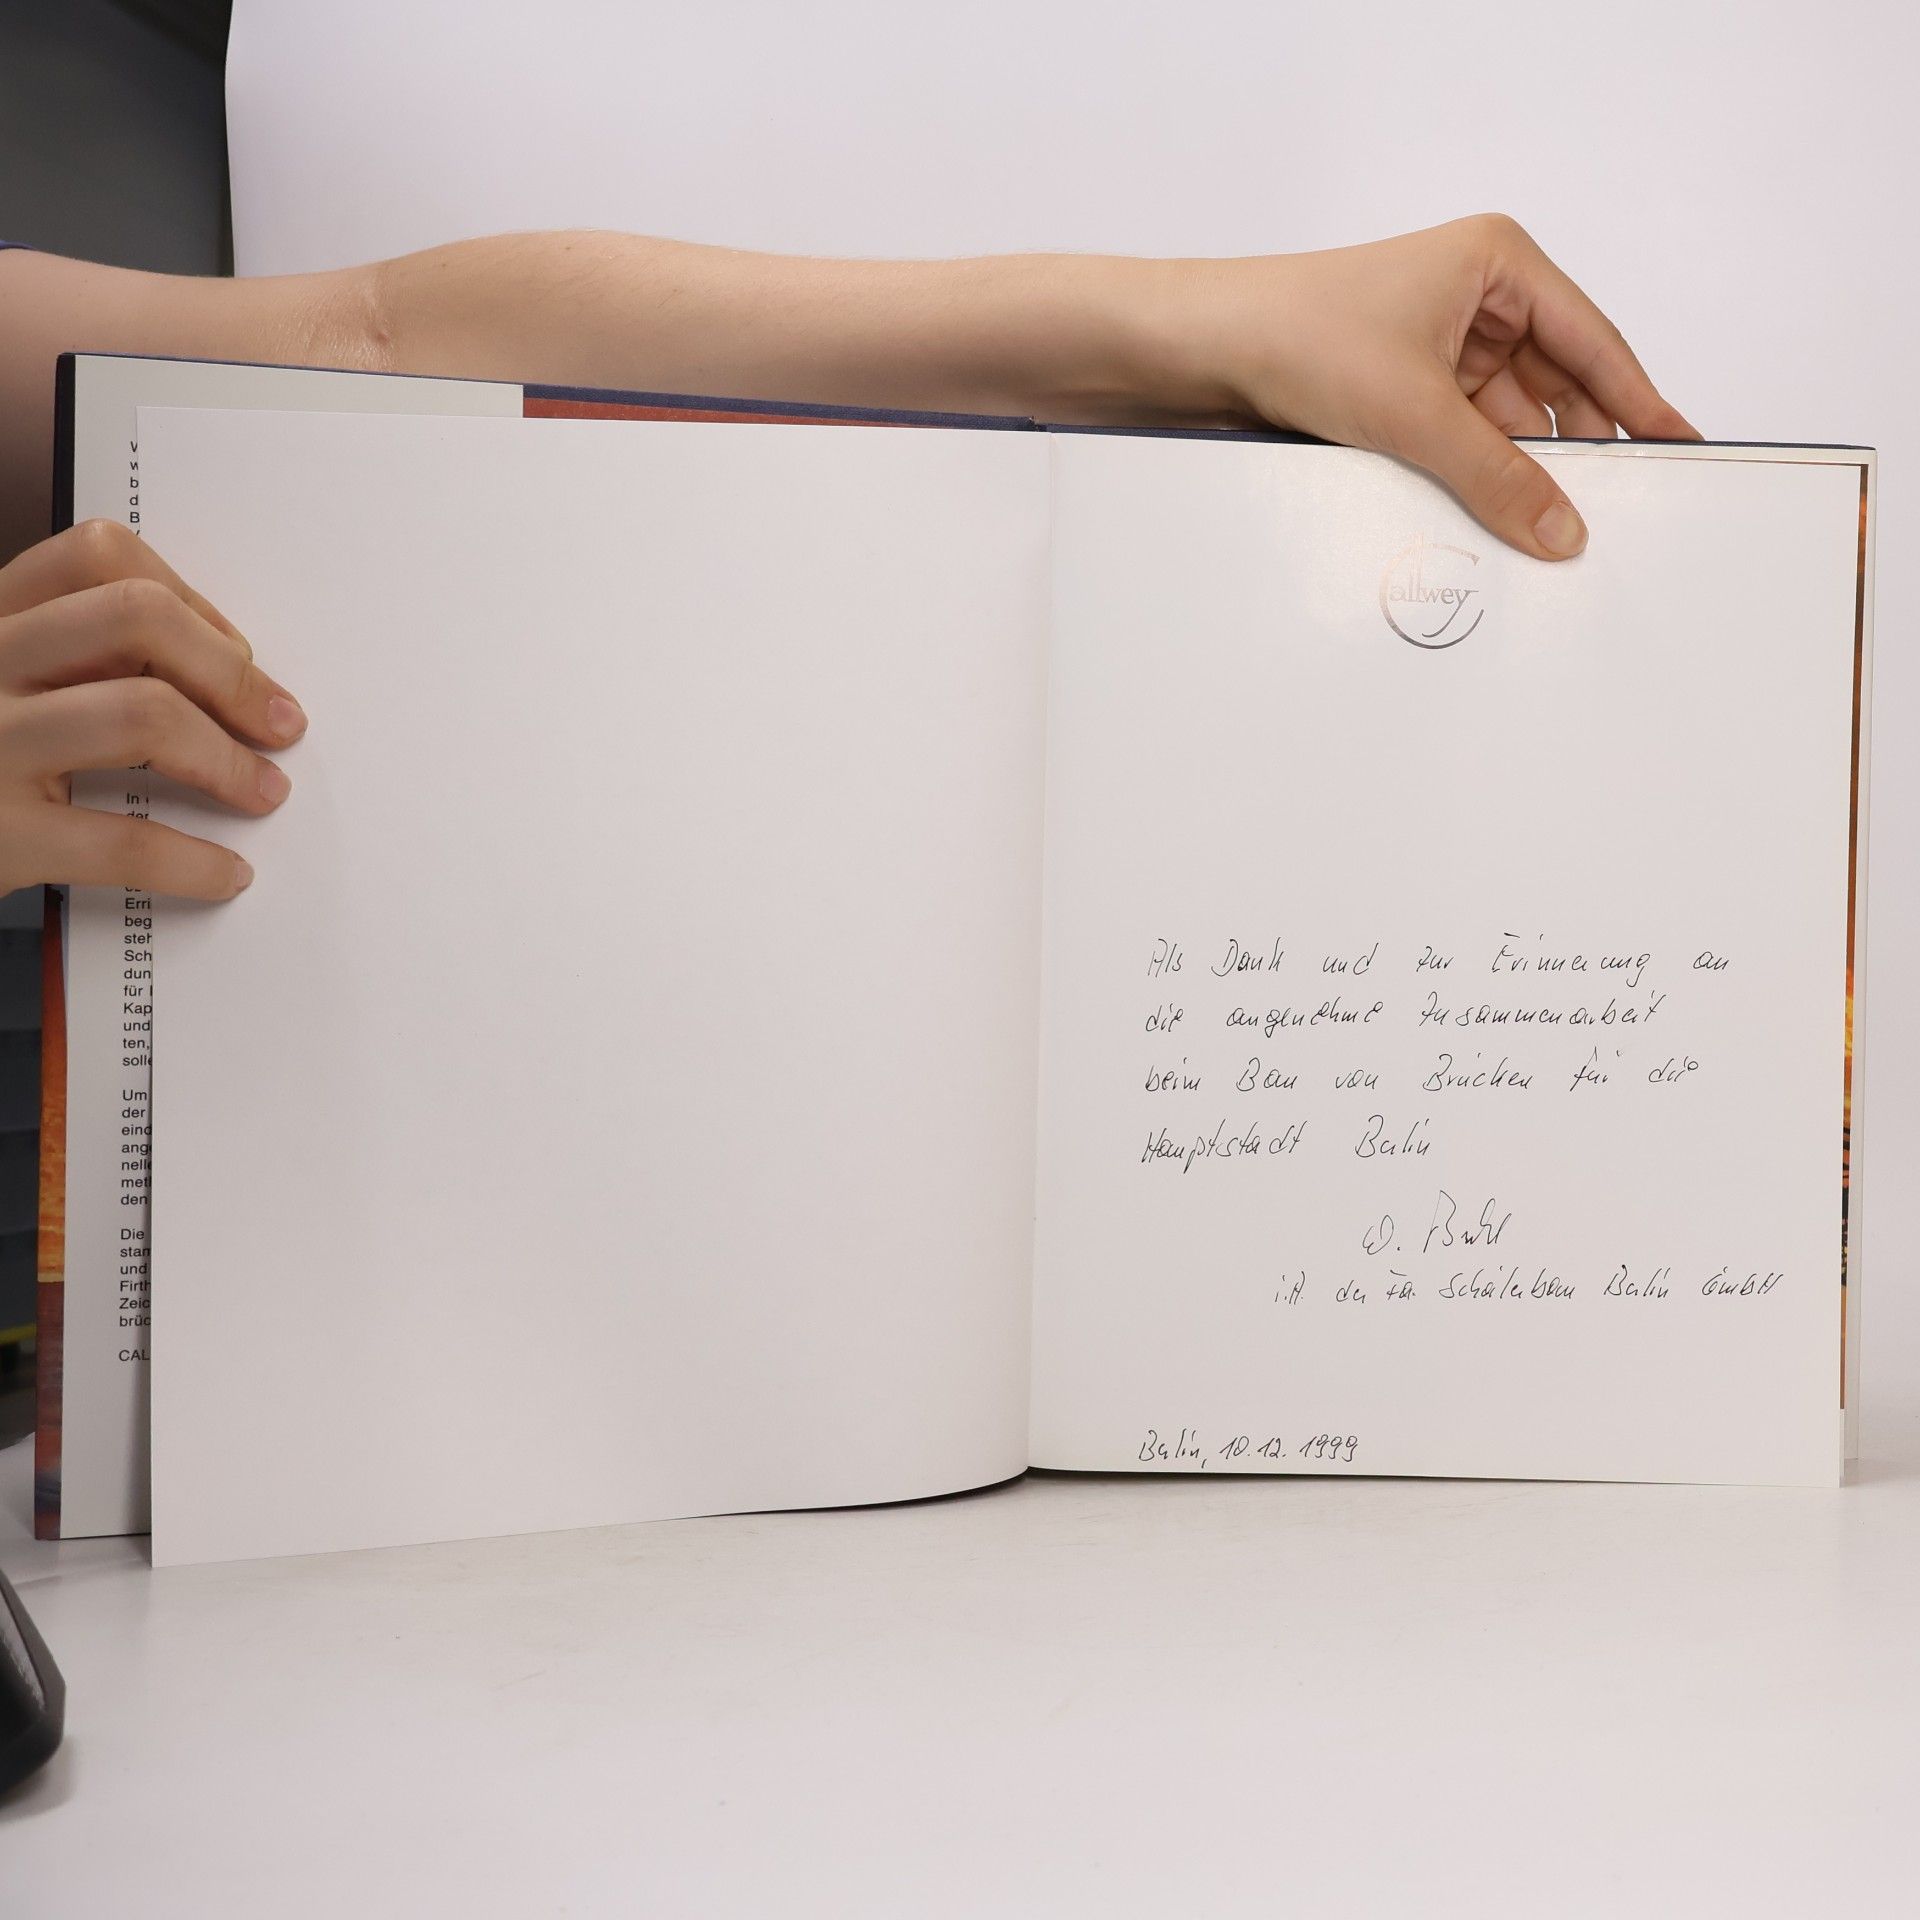 W
w
b
d
B
In
der
Erri
beg
steh
Sch
dun
für
Kap
und
ten,
solle
Um
der
eind
ange
nelle
met
den
Die
stam
und
Firth
Zeic
brüc
CAL
Callwey
Als Dank und zur Erinnerung an
die angenehme Zusammenarbeit
beim Bau von Brücken für die
Hauptstadt Berlin
i.A. der Fa. Schälerbau Berlin GmbH
Berlin, 10.12.1999